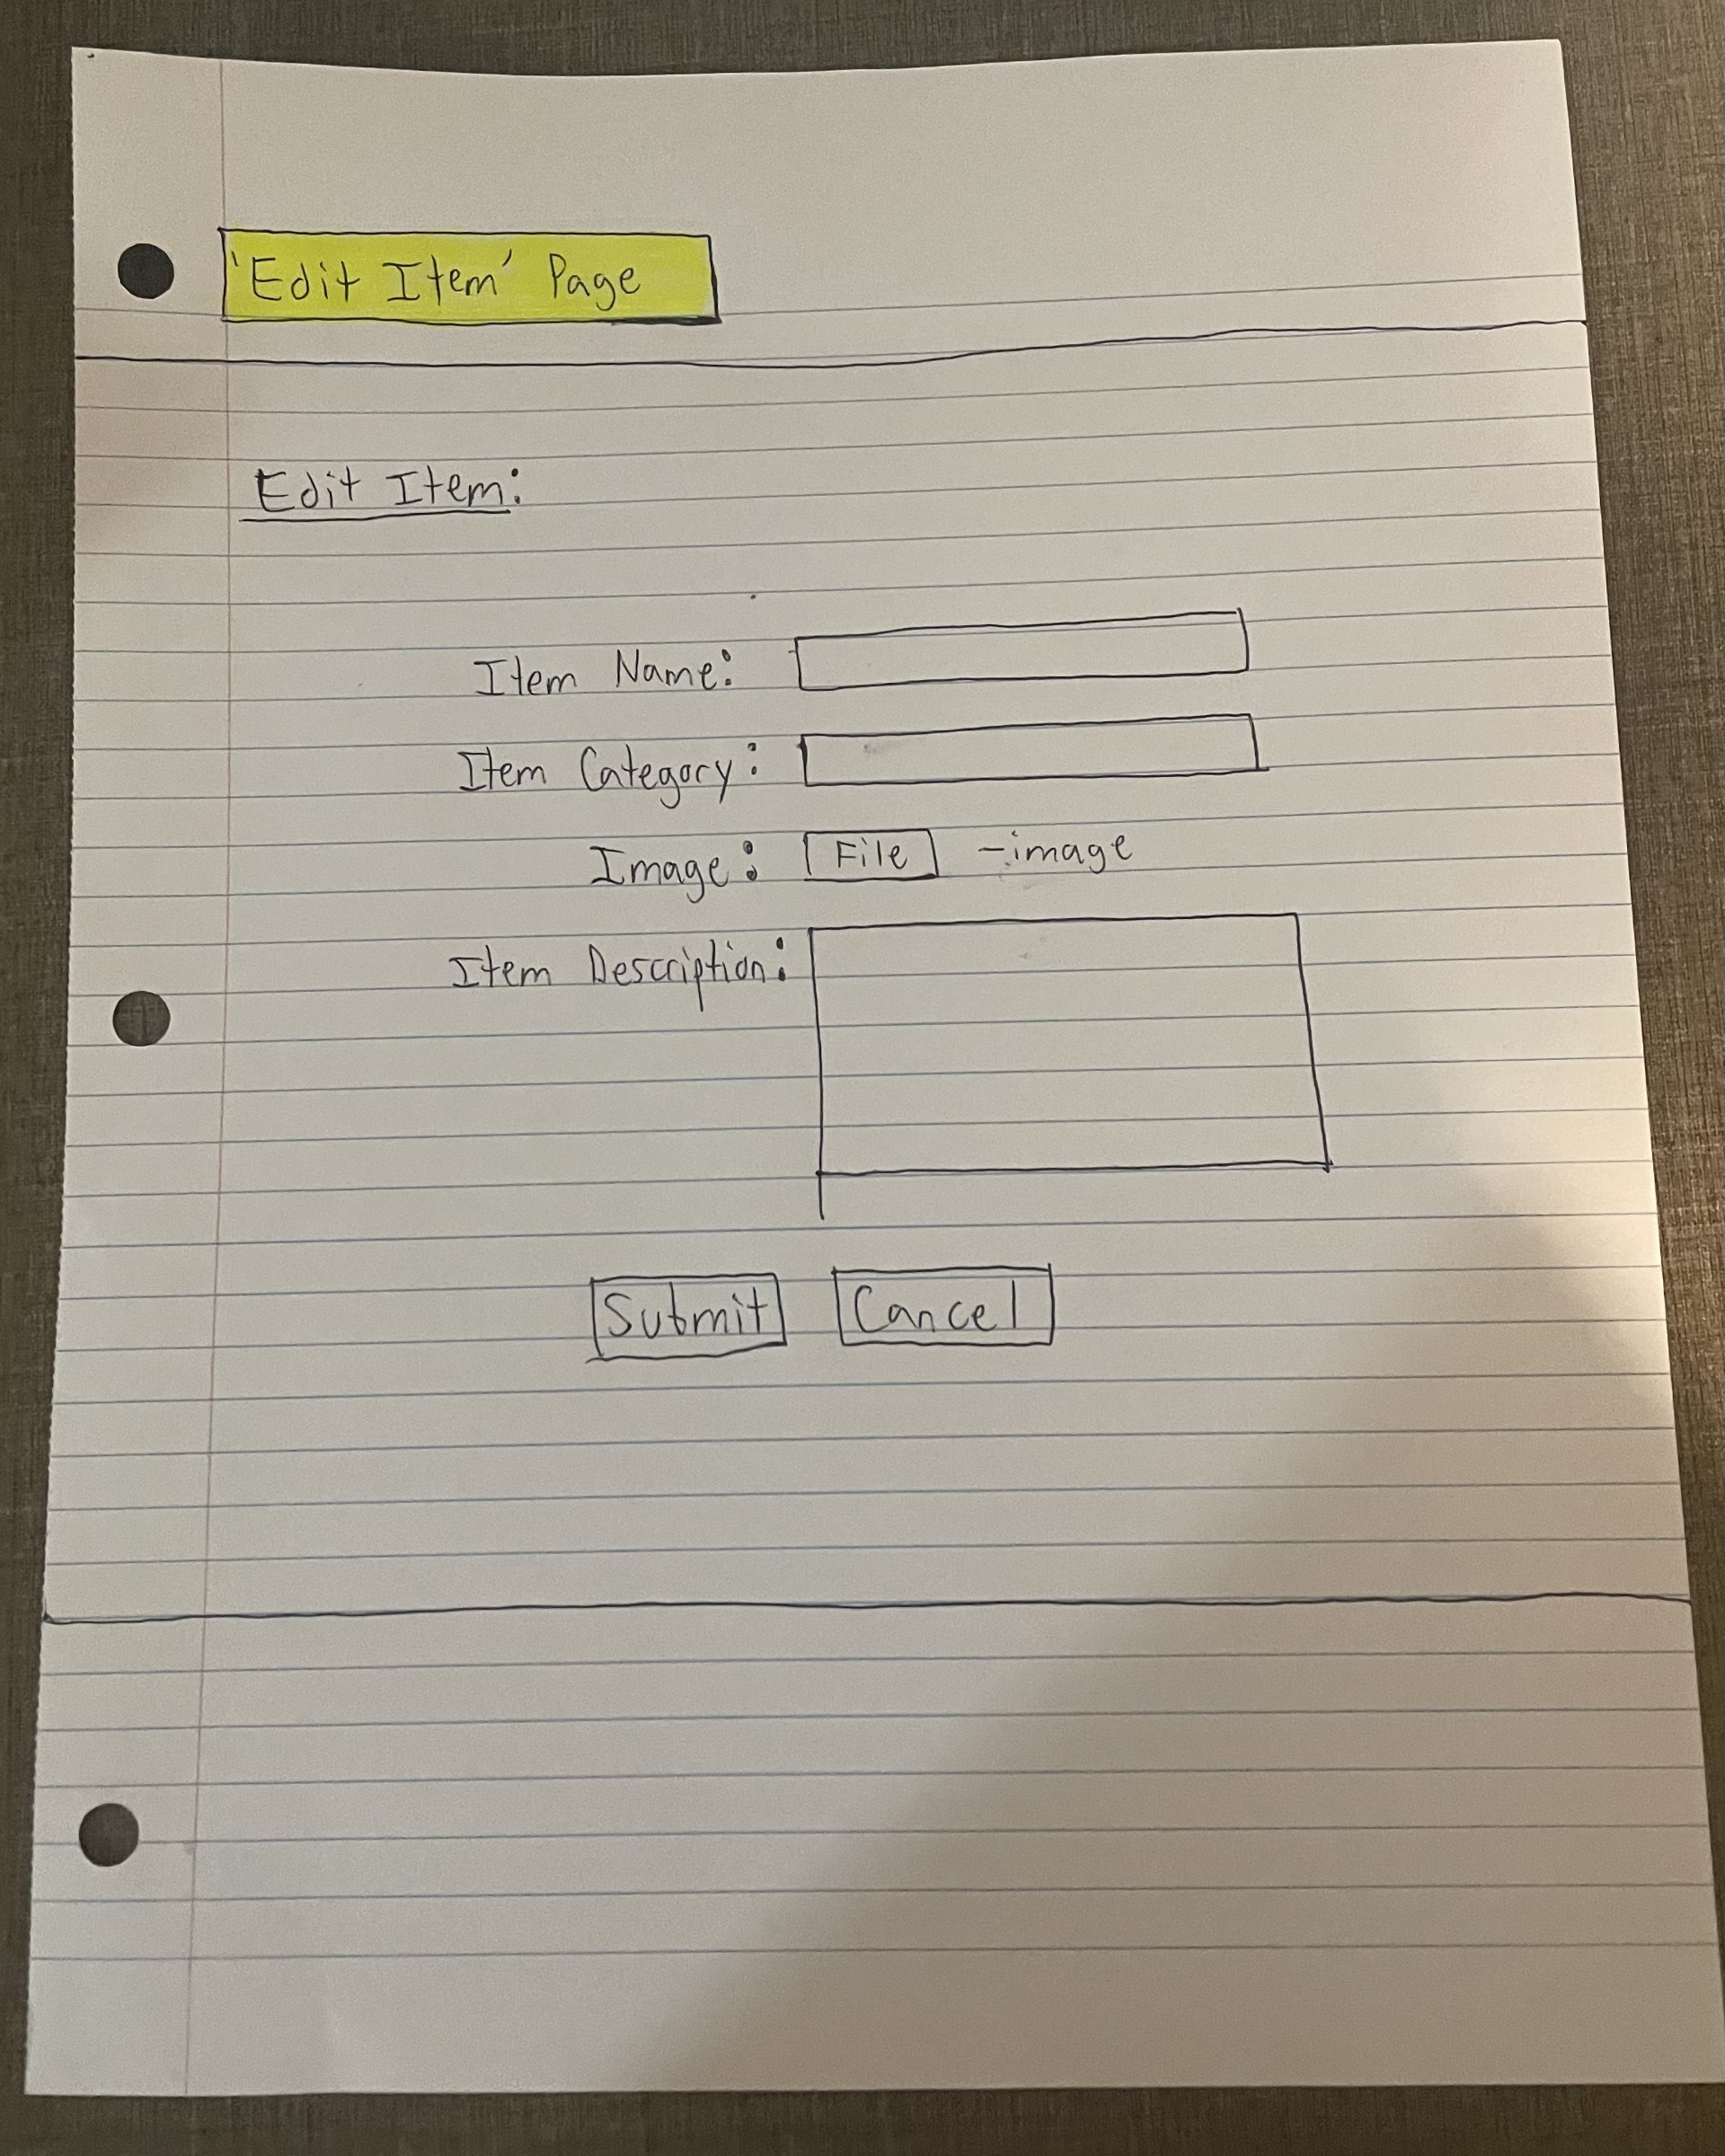 'Edit Item' Page
Edit Item:
Item Name:
Item Category:
Image: File -image
Item Description:
Submit Cancel